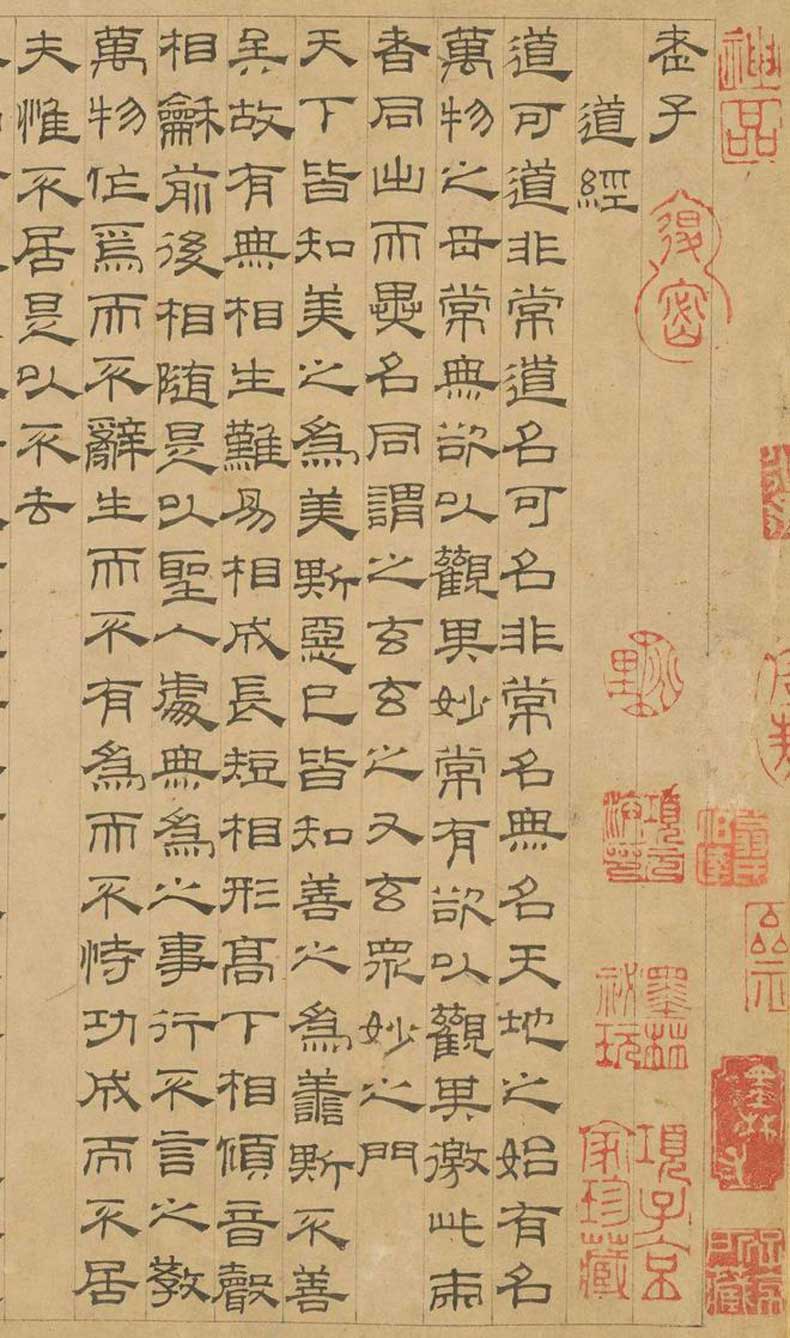 神品
老子
項子京家珍藏
墨林祕玩
道經
道可道非常道名可名非常名無名天地之始有名
萬物之母常無欲以觀其妙常有欲以觀其徼此兩
者同出而異名同謂之玄玄之又玄眾妙之門
天下皆知美之為美斯惡已皆知善之為譱斯不善
矣故有無相生難易相成長短相形高下相傾音聲
相龢前後相隨是以聖人處無為之事行不言之教
萬物作焉而不辭生而不有為而不恃功成而不居
夫惟不居是以不去